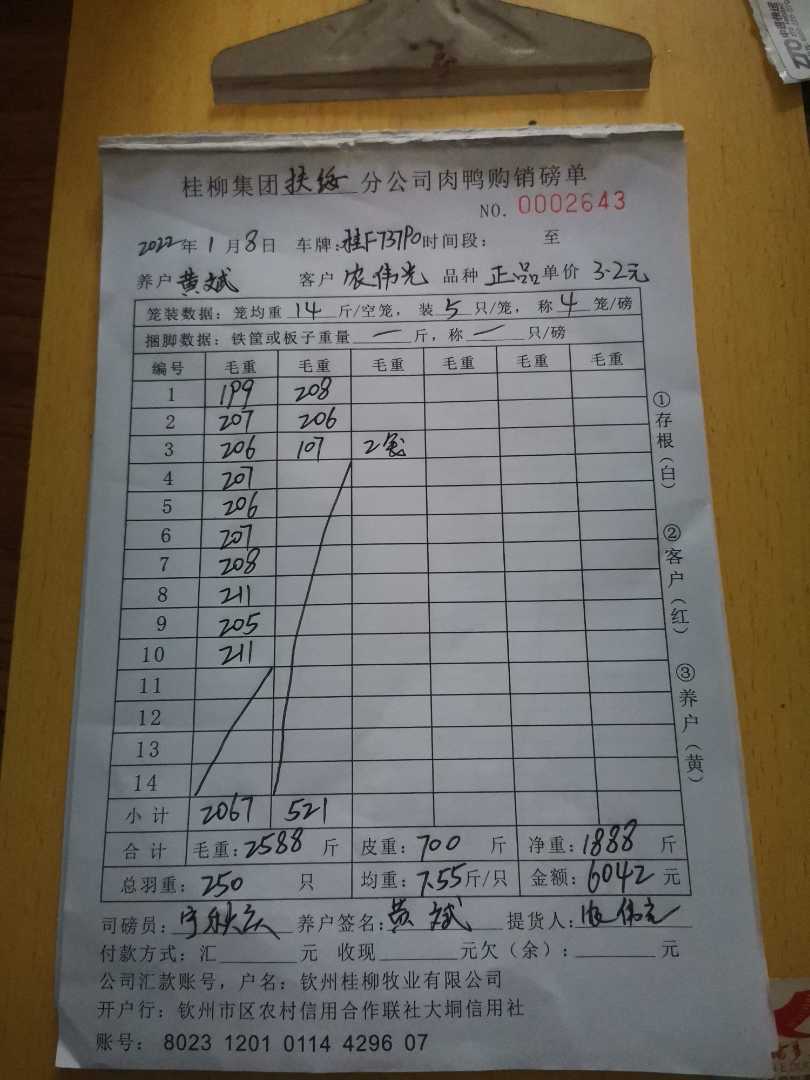 桂柳集团扶绥分公司肉鸭购销磅单
NO. 0002643
2022年1月8日 车牌:桂F737P0时间段: 至
养户黄斌 客户农伟光 品种正品单价3.2元
笼装数据: 笼均重14斤/空笼, 装5只/笼, 称4笼/磅
捆脚数据: 铁筐或板子重量一斤, 称一只/磅
编号 毛重 毛重 毛重 毛重 毛重 毛重
1 199 208
2 207 206
3 206 107 2笼
4 207
5 206
6 207
7 208
8 211
9 205
10 211
11
12
13
14
小计 2067 521
合计 毛重:2588斤 皮重:700斤 净重:1888斤
总羽重:250只 均重:7.55斤/只 金额:6042元
司磅员: 养户签名:黄斌 提货人:农伟光
付款方式: 汇 元 收现 元欠(余): 元
公司汇款账号, 户名: 钦州桂柳牧业有限公司
开户行: 钦州市区农村信用合作联社大垌信用社
账号: 8023 1201 0114 4296 07
①存根(白) ②客户(红) ③养户(黄)